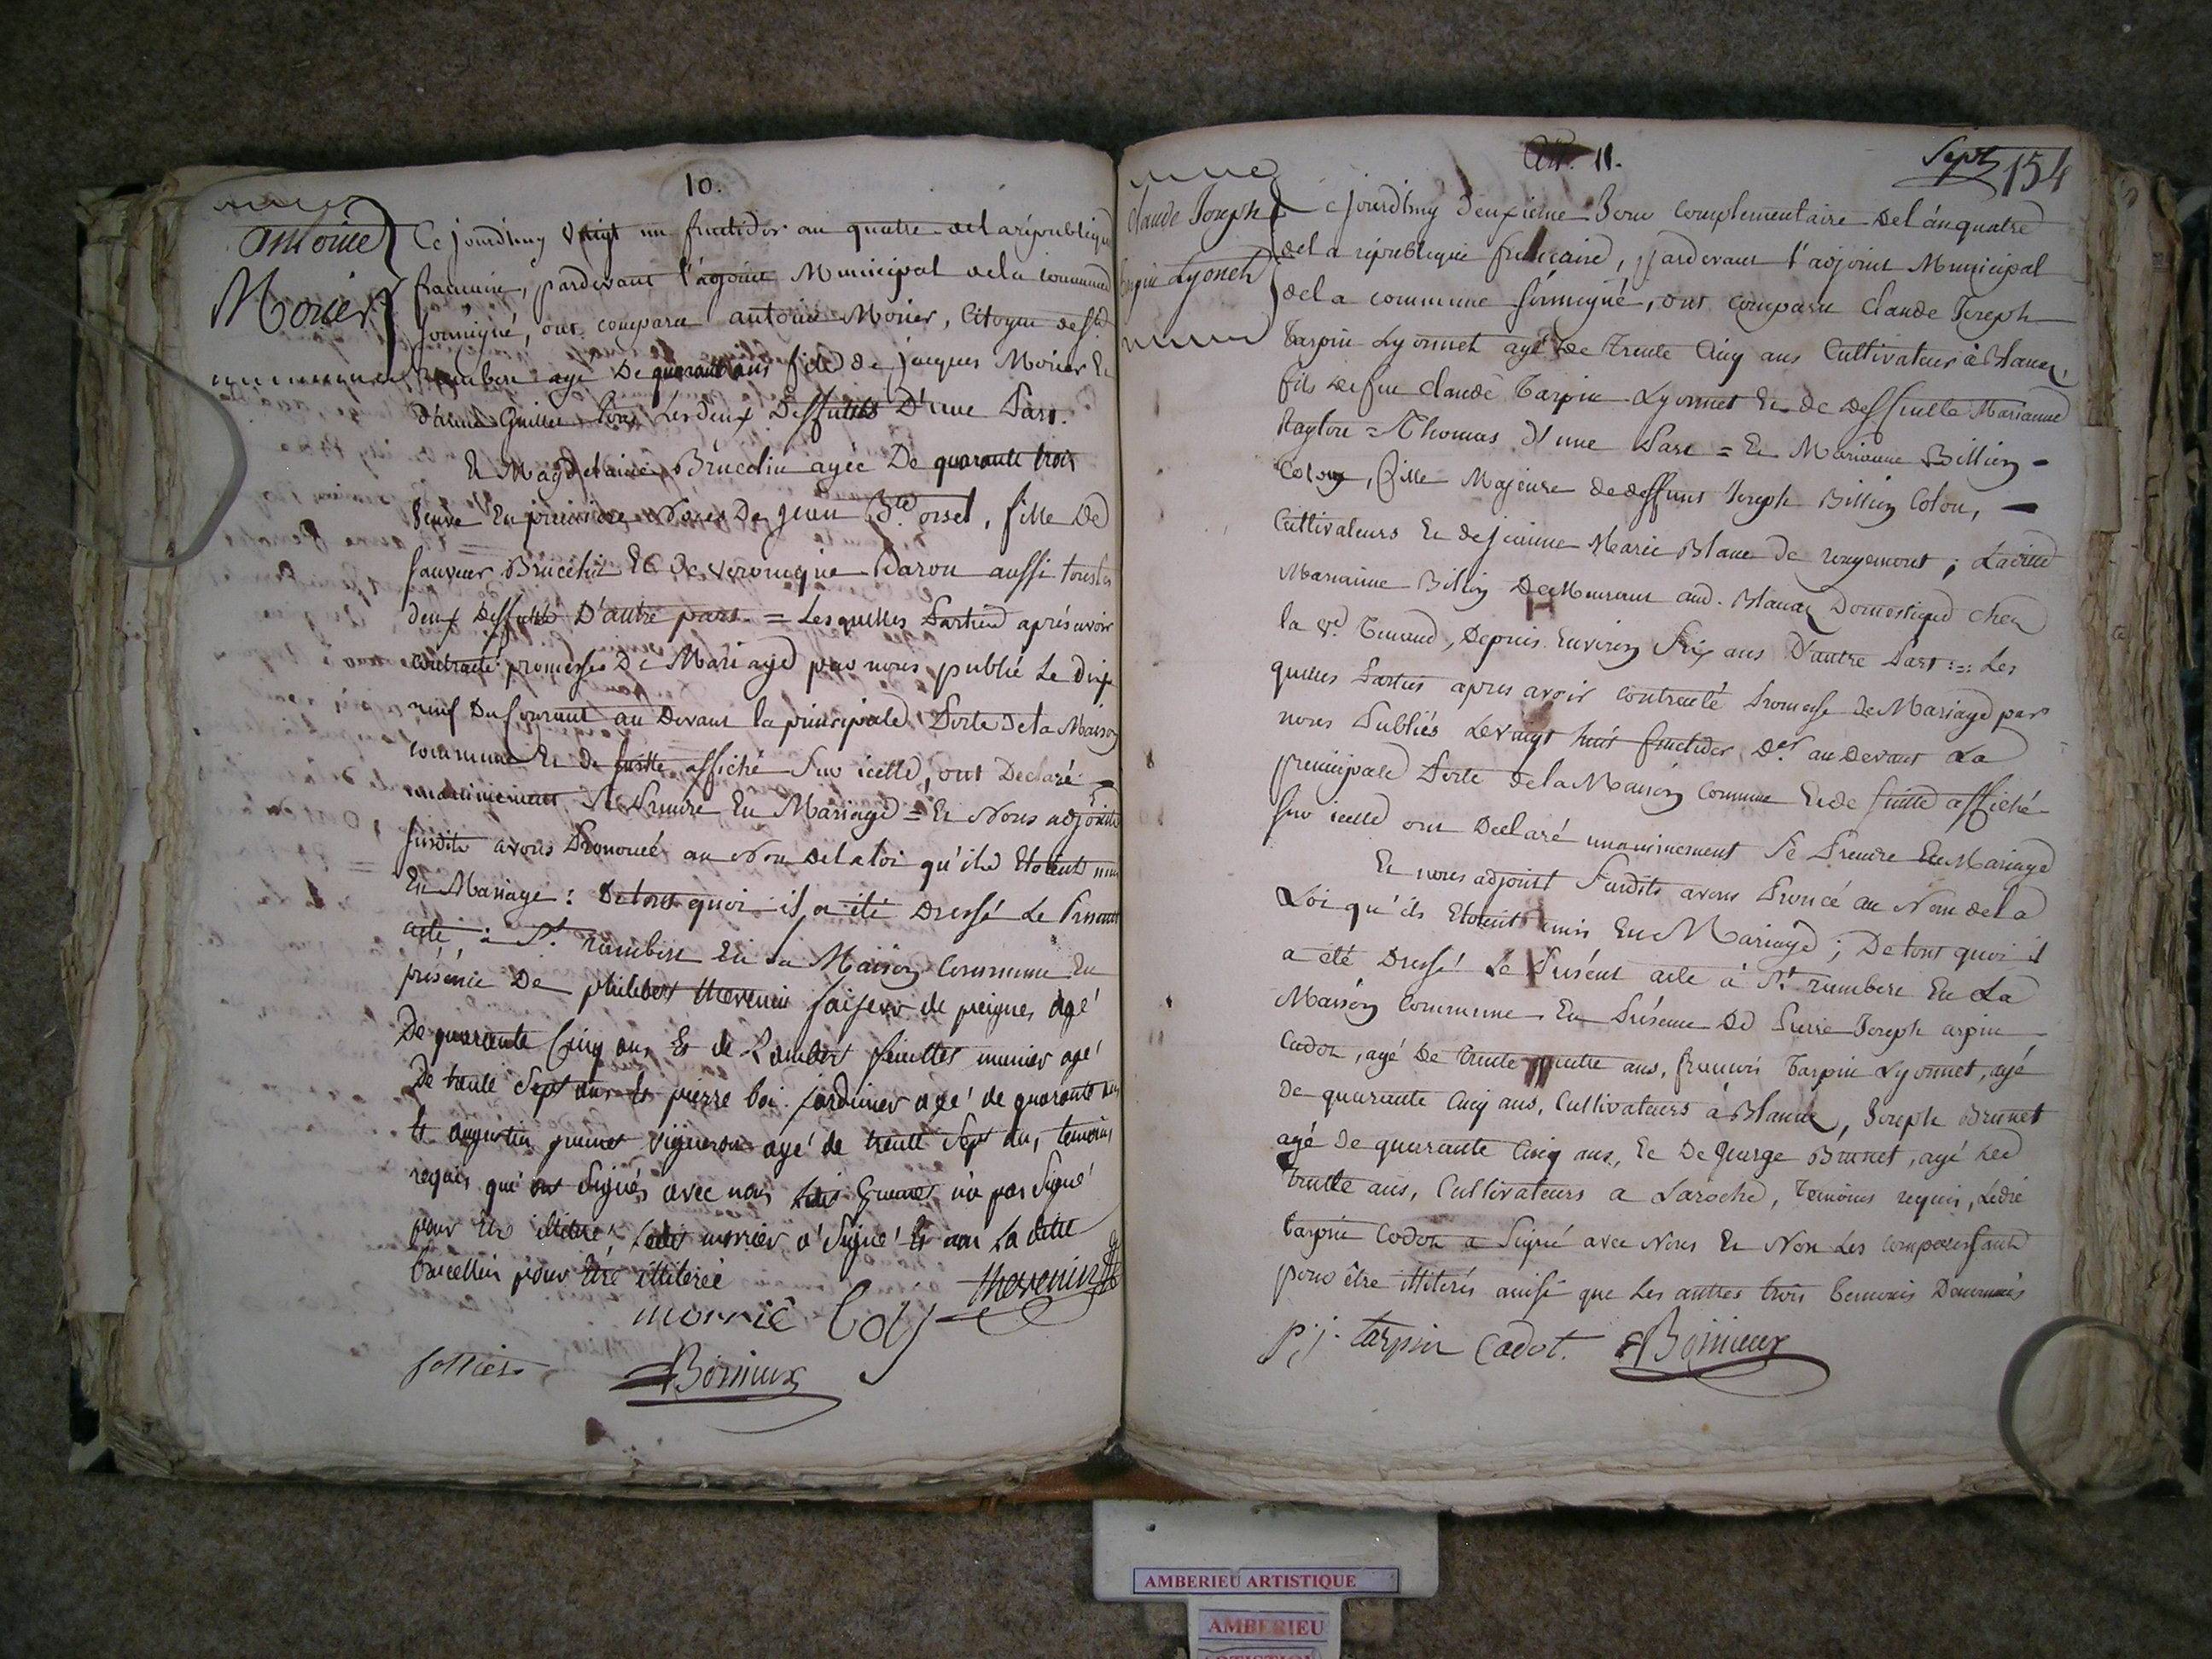 10.
Antoine
Morier
Ce jourdhuy vingt un fructidor an quatre de la républiqu
francaise, pardevant l'agoint Municipal de la commune
soussigné, ont comparu antoine Morier, Citoyen de St
rambert agé De quarante ans fils de jacques Morier Et
Les deux Deffunts D'une Part.
Et Magdelaine Brucelin agée De quarante trois
Veuve En premiere Noces De jean Bte orset, fille De
sauveur Brucelin Et De veronique Baron aussi tous les
deux Deffunts D'autre part. = Lesquelles Parties aprés avoir
contracté promesses De Mariage par nous publié Le dix
neuf Du Courant au Devant la principale Porte de la Maison
commune Et de suitte affiché Sur icelle, ont Declaré
unanimement Se Prendre En Mariage = Et Nous adjoint
susdits avons Prononcé au Nom De la loi qu'ils Etoient unis
En Mariage : De tout quoi il a été Dressé Le Present
acte, à St. rambert En La Maison Commune En
présence De philibert thevenin faiseur de peignes agé
De quarante Cinq ans Et de Rambert munier agé
De trente Sept ans Et pierre boi jardinier agé de quarante
Et augustin vigneron agé de trente Sept ans, temoins
requis qui ont Signés avec nous n'a pas Signé
pour Etre illitéré morrier a Signé Et non La ditte
brucellin pour Etre illiterée
morrié Boy thevenin
Bonnieux
Art. 11.
Sept 154
Claude Joseph
tarpin Lyonet
Ce jourdhuy deuxieme Jour complementaire De l'an quatre
de la république francaise, pardevant l'adjoint Municipal
de la commune soussigné, ont comparu Claude Joseph
Tarpin Lyonnet agé De trente Cinq ans Cultivateur à Blanaz,
fils de feu Claude Tarpin Lyonnet Et de Deffunte Marianne
Thomas D'une Part = Et Marianne Billion
Colon, fille Majeure de deffunt Joseph Billion Colon,
Cultivateurs Et de jeanne Marie Blanc de rougemont ; Ladite
Marianne Billion Demeurant aud. Blanaz Domestique chez
la ve. Tenand, Depuis Environ Six ans D'autre Part = Les
quelles Parties apres avoir contracté Promesse De Mariage par
nous Publiés Le vingt huit fructidor Der au Devant La
principale Porte de la Maison Commune Et de suitte affiché
Sur icelle ont Declaré unanimement Se Prendre En Mariage
Et nous adjoint Susdits avons Proncé au Nom de la
Loi qu'ils Etoient unis En Mariage ; De tout quoi il
a été Dressé Le Présent acte à St. rambert En La
Maison Commune En Présence De Pierre Joseph arpin
Cadot, agé De trente quatre ans, francois Tarpin Lyonnet, agé
de quarante Cinq ans, Cultivateurs à Blanaz, Joseph Brunet
agé De quarante Cinq ans, Et De George Brunet, agé De
trente ans, Cultivateurs a Laroche, Temoins requis, Ledit
tarpin Codot a Signé avec Nous Et Non Les comparoissants
pour être illiterés ainsi que Les autres trois temoins Denommés
p: j. tarpin Cadot. Bonnieux
AMBERIEU ARTISTIQUE
AMBERIEU